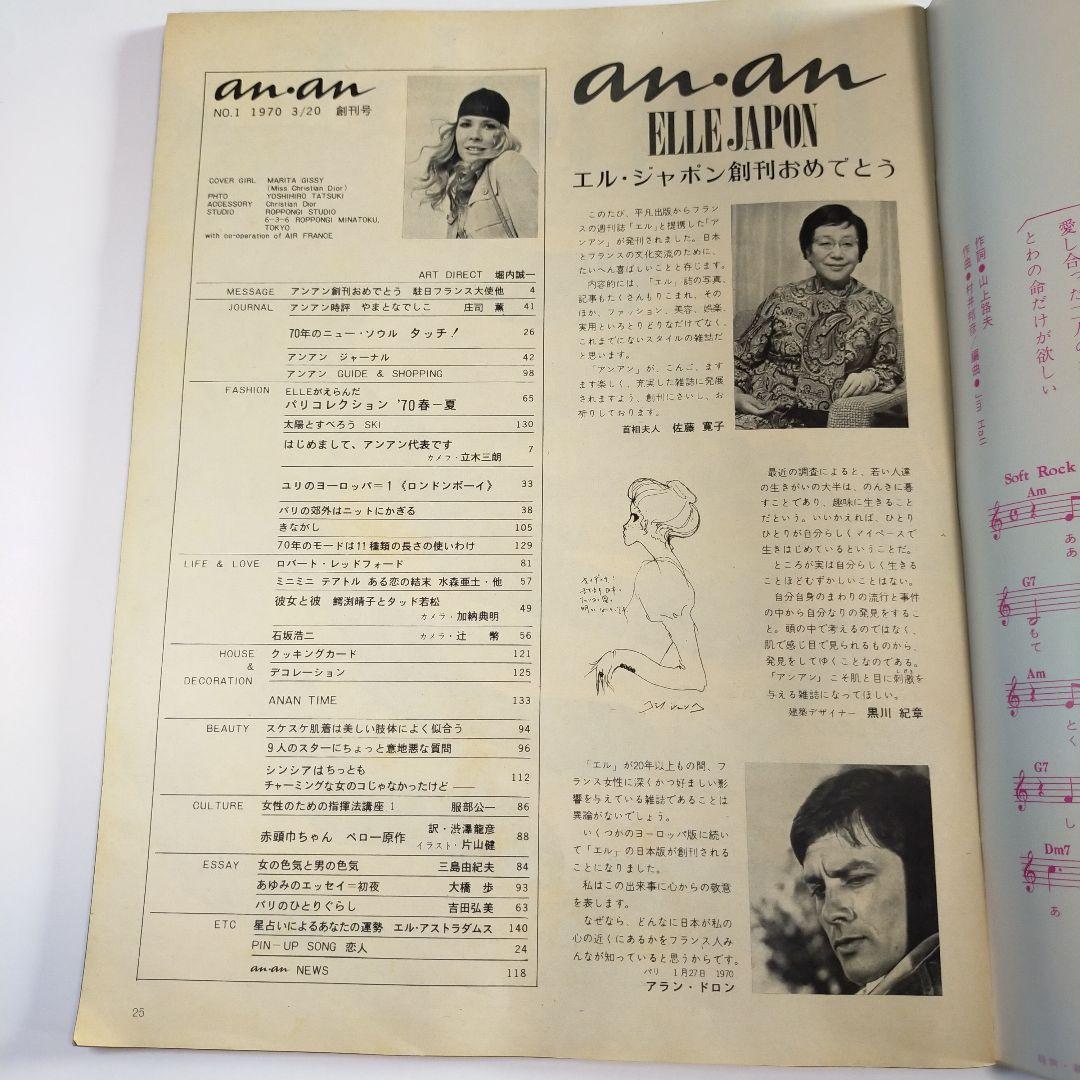 an・an
NO.1 1970 3/20 創刊号
COVER GIRL MARITA GISSY
(Miss Christian Dior)
PHTO YOSHIHIRO TATSUKI
ACCESSORY Christian Dior
STUDIO ROPPONGI STUDIO
6-3-6 ROPPONGI MINATOKU,
TOKYO
with co-operation of AIR FRANCE
ART DIRECT 堀内誠一
MESSAGE アンアン創刊おめでとう 駐日フランス大使他 4
JOURNAL アンアン時評 やまとなでしこ 庄司 薫 41
70年のニュー・ソウル タッチ! 26
アンアン ジャーナル 42
アンアン GUIDE & SHOPPING 98
FASHION ELLEがえらんだ
パリコレクション '70春ー夏 65
太陽とすべろう SKI 130
はじめまして、アンアン代表です 7
カメラ・立木三朗
ユリのヨーロッパ=1《ロンドンボーイ》 33
パリの郊外はニットにかぎる 38
きながし 105
70年のモードは11種類の長さの使いわけ 129
LIFE & LOVE ロバート・レッドフォード 81
ミニミニ テアトル ある恋の結末 水森亜土・他 57
彼女と彼 鰐渕晴子とタッド若松 49
カメラ・加納典明
石坂浩二 カメラ・辻 幣 56
HOUSE & DECORATION クッキングカード 121
デコレーション 125
ANAN TIME 133
BEAUTY スケスケ肌着は美しい肢体によく似合う 94
9人のスターにちょっと意地悪な質問 96
シンシアはちっとも
チャーミングな女のコじゃなかったけど—— 112
CULTURE 女性のための指揮法講座 1 服部公一 86
赤頭巾ちゃん ペロー原作 訳・渋澤龍彦 88
イラスト・片山健
ESSAY 女の色気と男の色気 三島由紀夫 84
あゆみのエッセイ=初夜 大橋 歩 93
パリのひとりぐらし 吉田弘美 63
ETC 星占いによるあなたの運勢 エル・アストラダムス 140
PIN-UP SONG 恋人 24
an・an NEWS 118
25
an・an
ELLE JAPON
エル・ジャポン創刊おめでとう
このたび、平凡出版からフラン
スの週刊誌「エル」と提携した「ア
ンアン」が発刊されました。日本
とフランスの文化交流のために、
たいへん喜ばしいことと存じます。
内容的には、「エル」誌の写真、
記事もたくさんもりこまれ、その
ほか、ファッション、美容、娯楽、
実用といろとりどりなだけでなく、
これまでにないスタイルの雑誌だ
と思います。
「アンアン」が、こんご、ます
ます楽しく、充実した雑誌に発展
されますよう、創刊にさいし、お
祈りしております。
首相夫人 佐藤 寛子
最近の調査によると、若い人達
の生きがいの大半は、のんきに暮
すことであり、趣味に生きること
だという。いいかえれば、ひとり
ひとりが自分らしくマイペースで
生きはじめているということだ。
ところが実は自分らしく生きる
ことほどむずかしいことはない。
自分自身のまわりの流行と事件
の中から自分なりの発見をするこ
と。頭の中で考えるのではなく、
肌で感じ目で見られるものから、
発見をしてゆくことなのである。
「アンアン」こそ肌と目に刺激を
与える雑誌になってほしい。
建築デザイナー 黒川 紀章
「エル」が20年以上もの間、フ
ランス女性に深くかつ好ましい影
響を与えている雑誌であることは
異論がないでしょう。
いくつかのヨーロッパ版に続い
て「エル」の日本版が創刊される
ことになりました。
私はこの出来事に心からの敬意
を表します。
なぜなら、どんなに日本が私の
心の近くにあるかをフランス人み
んなが知っていると思うからです。
パリ 1月27日 1970
アラン・ドロン
作詞●山上路夫
作曲●村井邦彦/編曲●
とわの命だけが欲しい
Soft Rock
Am
ああ
G7
もて
Am
とく
G7
し
Dm7
あ